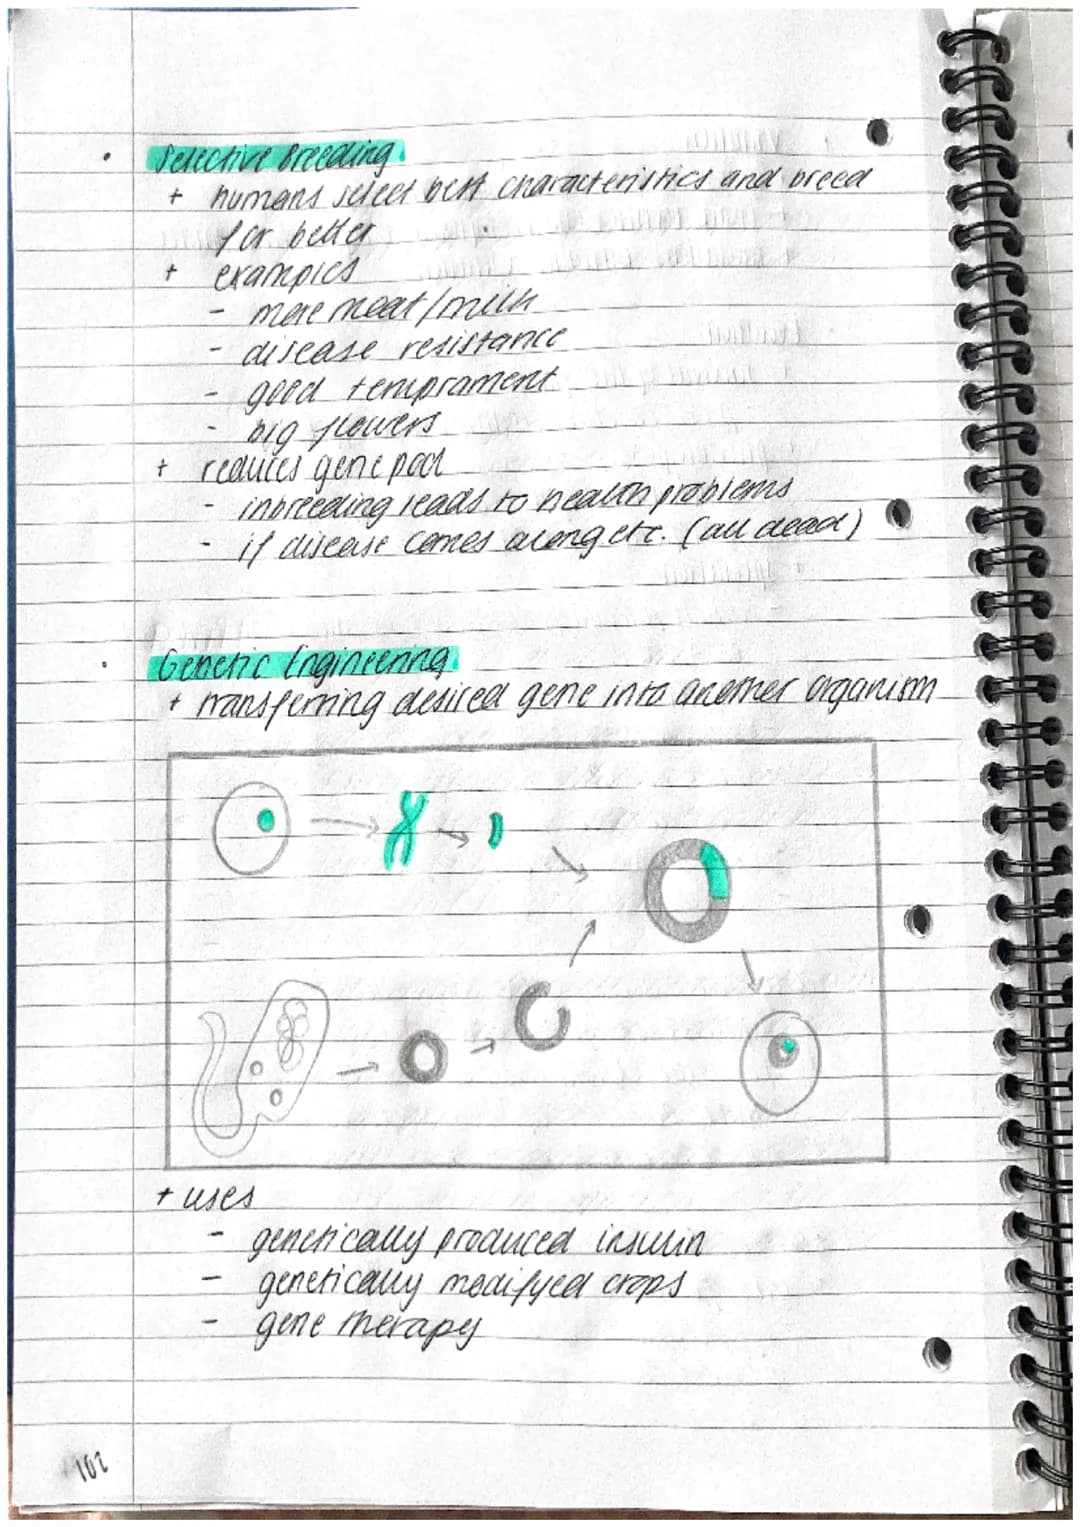 Selective Breeding
+ humans select best characteristics and breed
for better
+ examples
- more meat/milk
- disease resistance
- good temprament
- big flowers
+ reduces gene pool
- inbreeding leads to health problems
- if disease comes along etc. (all dead)
Genetic Engineering
+ transferring desired gene into another organism
+ uses
- genetically produced insulin
- genetically modifyed crops
- gene therapy
102